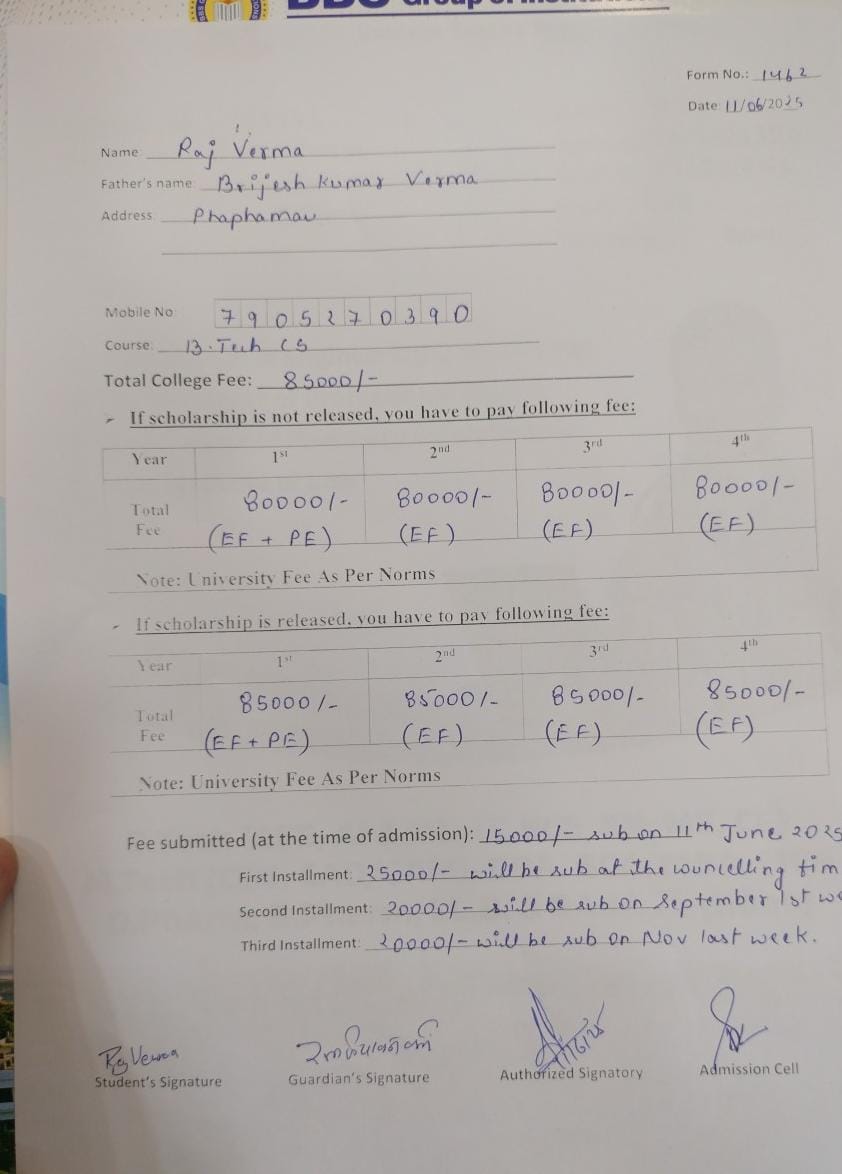 Form No.: 1462
Date 11/06/2025
Name Raj Verma
Father's name: Brijesh Kumar Verma
Address: Phaphamau
Mobile No 7905270390
Course: B.Tech CS
Total College Fee: 85000/-
If scholarship is not released, you have to pay following fee:
Year 1st 2nd 3rd 4th
Total Fee 80000/- 80000/- 80000/- 80000/-
(EF + PE) (EF) (EF) (EF)
Note: University Fee As Per Norms
If scholarship is released, you have to pay following fee:
Year 1st 2nd 3rd 4th
Total Fee 85000/- 85000/- 85000/- 85000/-
(EF + PE) (EF) (EF) (EF)
Note: University Fee As Per Norms
Fee submitted (at the time of admission): 15000/- sub on 11th June 2025
First Installment: 25000/- will be sub at the councelling tim
Second Installment: 20000/- will be sub on September 1st we
Third Installment: 20000/- will be sub on Nov last week.
Raj Verma
Student's Signature Guardian's Signature Authorized Signatory Admission Cell